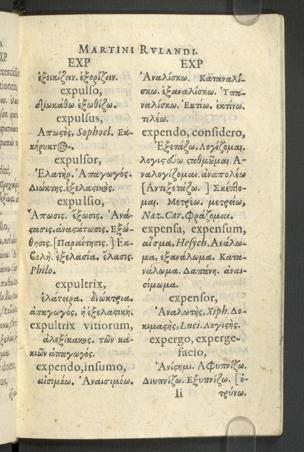 MARTINI RVLANDI.
EXP
ἐξοικίζειν. ἐξορίζειν.
expulso,
διωκάθω ἐξωθίζω.
expulsus,
Ἀπωςὸς, Sophocl. Ἐκ-
κήρυκτ
expulsor,
Ἐλατὴρ. Ἀπαγωγὸς.
Διώκτης. ἐξελαςικὸς.
expulsio,
Ἄπωσις. ἔξωσις. Ἀνά-
ςασις. ἀναςάτωσις. Ἐξώ-
θησις. [Παραίτησις.] Ἐκ-
βολὴ. ἐξελασία, ἔλασις.
Philo.
expultrix,
ἐλάτειρα. διώκτρια.
ἀπαγωγὸς, ἡ ἐξελαςικὴ.
expultrix vitiorum,
ἀλεξίκακος. τῶν κα-
κῶν ἀπαγωγὸς.
expendo, insumo,
Ἀναισιμόω.
EXP
Ἀναλίσκω. Καταναλί-
σκω. ἐξαναλίσκω. Ὑπα-
ναλίσκω. Ἐκτίω. ἐκτίνω.
τιλέω.
expendo, considero,
Ἐξετάζω. Λογίζομαι.
ἀ-
ναλογίζομαι. ἀναπολέω
[Ἀντεξετάζω.] Σκέπτο-
μαι. Μετρέω. μετρέω,
Naz. Car. Φράζομαι.
expensa, expensum,
αἴσιμα, Hesych. Ἀνάλω-
μα, ἐξανάλωμα. Κατα-
νάλωμα. Δαπάνη. ἀναι-
σίμωμα.
expensor,
Ἀναλωτὴς, Xiph. Δο-
κιμαςὴς, Luci. Λογιςὴς.
expergo, experge-
facio,
Ἀνίςημι. Ἀφυπνίζω.
Διυπνίζω. Ἐξυπνίζω. [ὀ-
Ii
τρύνω.